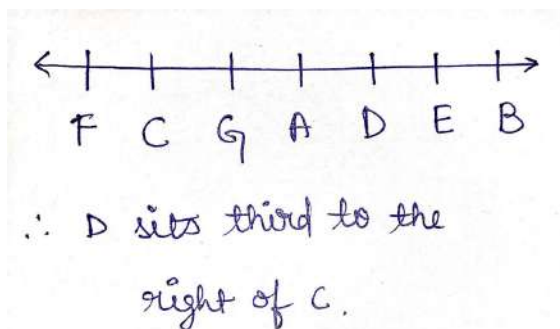 F C G A D E B
∴ D sits third to the
right of C.